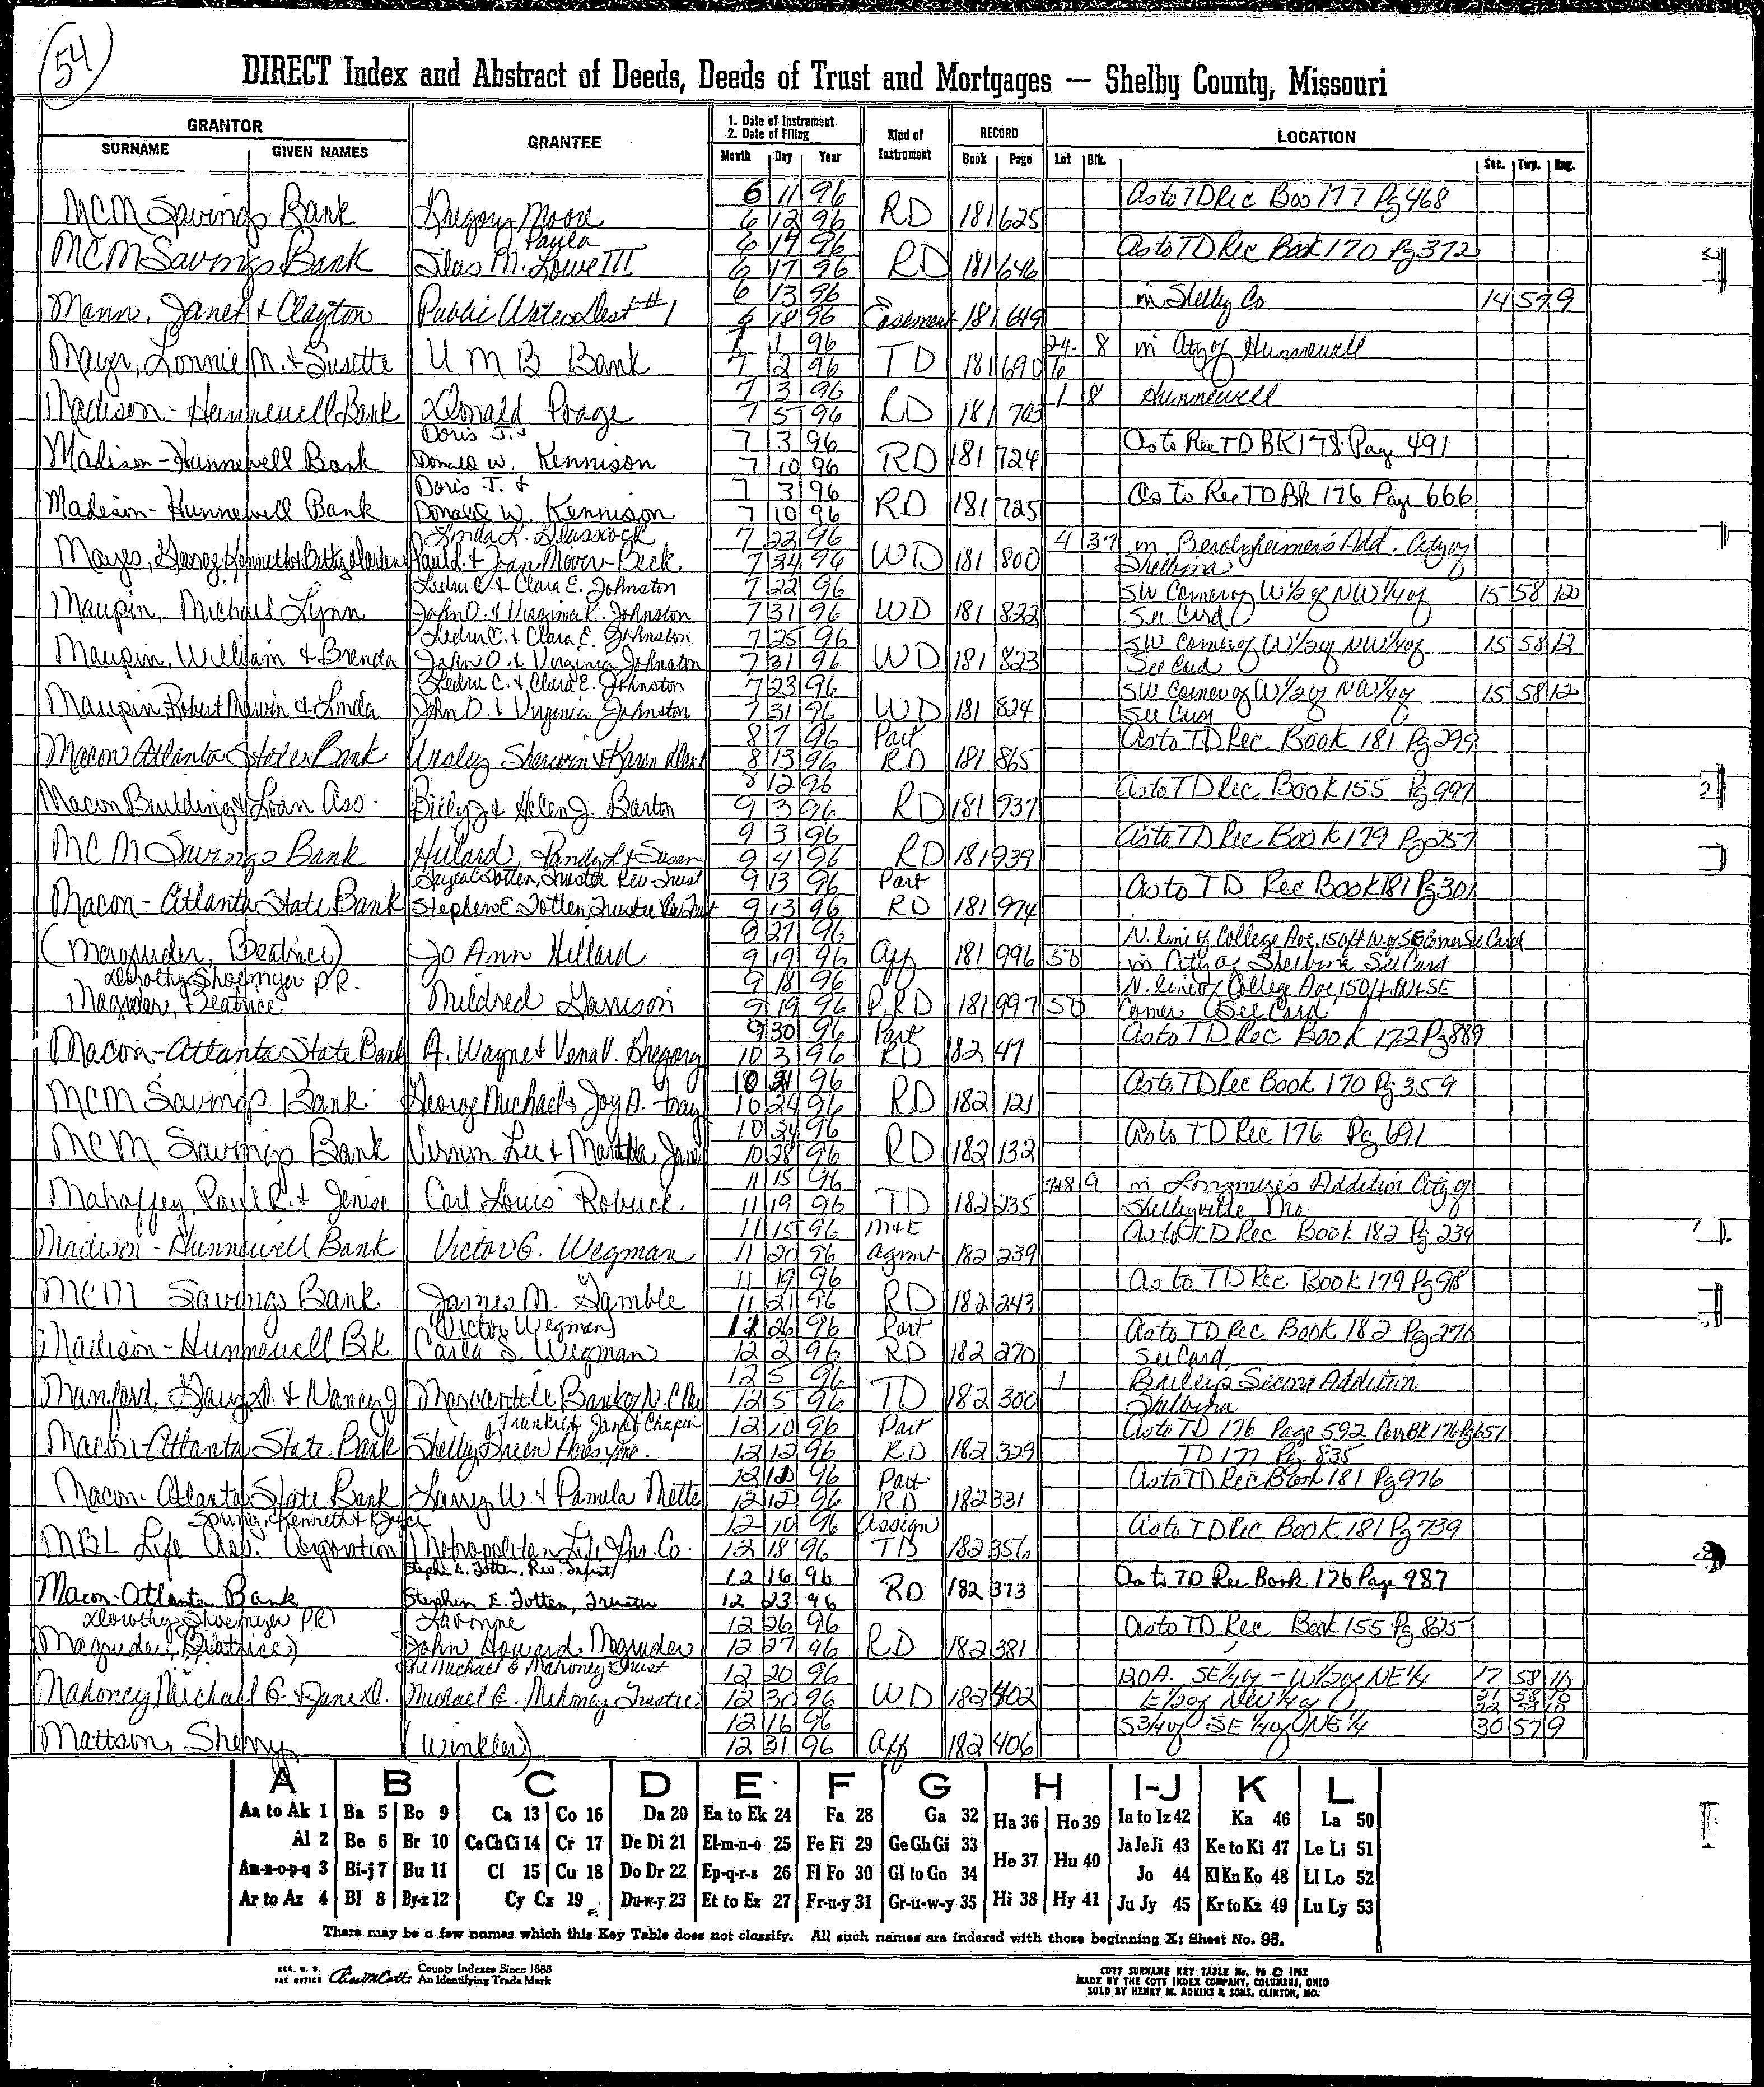 54
DIRECT Index and Abstract of Deeds, Deeds of Trust and Mortgages — Shelby County, Missouri
GRANTOR
SURNAME GIVEN NAMES
GRANTEE
1. Date of Instrument
2. Date of Filing
Month Day Year
Kind of Instrument
RECORD
Book Page
LOCATION
Lot Blk. Sec. Twp. Rng.
MCM Savings Bank Gregory Mood 6 11 96 RD 181 625 As to TD Rec Boo 177 Pg 468
6 12 96
Paula 6 14 96
MCM Savings Bank Silas M. Lowe III 6 17 96 RD 181 646 As to TD Rec Book 170 Pg 372
6 13 96
Mann, Janet & Clayton Public Water Dist #1 6 18 96 Easement 181 649 in Shelby Co 14 57 9
7 1 96 24- 8 in City of Hunnewell
Mayer, Lonnie M. & Susette U M B Bank 7 2 96 TD 181 690 6
7 3 96 1 8 Hunnewell
Madison-Hunnewell Bank Donald Poage 7 5 96 RD 181 703
Doris J. & 7 3 96 As to Rec TD BK 178 Page 491
Madison-Hunnewell Bank Donald W. Kennison 7 10 96 RD 181 724
Doris J. & 7 3 96 As to Rec TD Bk 176 Page 666
Madison-Hunnewell Bank Donald W. Kennison 7 10 96 RD 181 725
Linda L. Glasscock 7 22 96 4 37 in Berdyheimer's Add. City of
Mayes, George Kenneth & Betty Darlene 7 24 96 WD 181 800 Shelbina
Ledru C. & Clara E. Johnston 7 22 96 SW Corner of W 1/2 of NW 1/4 of 15 58 12
Maupin, Michael Lynn John O. & Virginia K. Johnston 7 31 96 WD 181 822 See Card
Ledru C. & Clara E. Johnston 7 25 96 SW Corner of W 1/2 of NW 1/4 of 15 58 12
Maupin, William & Brenda John O. & Virginia Johnston 7 31 96 WD 181 823 See Card
Ledru C. & Clara E. Johnston 7 23 96 SW Corner of W 1/2 of NW 1/4 of 15 58 12
Maupin, Robert Marvin & Linda John O. & Virginia Johnston 7 31 96 WD 181 824 See Card
8 7 96 Part As to TD Rec Book 181 Pg 299
Macon Atlanta State Bank Wesley Sherwin & Karen 8 13 96 RD 181 865
8 12 96 As to TD Rec Book 155 Pg 997
Macon Building & Loan Ass. Billy J & Helen J. Barton 9 3 96 RD 181 937
9 3 96 As to TD Rec Book 179 Pg 257
MCM Savings Bank Hilard, Randy L & Susan 9 4 96 RD 181 939
Totten, Trustee Rev Trust 9 13 96 Part As to TD Rec Book 181 Pg 301
Macon-Atlanta State Bank Stephen E. Totten, Trustee Rev Trust 9 13 96 RD 181 974
8 27 96 N. line of College Ave, 150 ft W. of SE Corner See Card
(Magruder, Beatrice) Jo Ann Hillard 9 19 96 Aff 181 996 50 in City of Shelbina See Card
Dorothy Shoemyer PR. 9 18 96 N. line of College Ave, 150 ft W of SE
Magruder, Beatrice Mildred Garrison 9 19 96 P.RD 181 997 50 Corner See Card
9 30 96 Part As to TD Rec Book 172 Pg 889
Macon-Atlanta State Bank A. Wayne & Vena V. Gregory 10 3 96 RD 182 47
10 21 96 As to TD Rec Book 170 Pg 359
MCM Savings Bank George Michael & Joy A. Gray 10 24 96 RD 182 121
10 24 96 As to TD Rec 176 Pg 691
MCM Savings Bank Vernon Lee & Martha Jane 10 28 96 RD 182 132
11 15 96 7&8 9 in Longmire's Addition City of
Mahaffey, Paul R. & Jenise Carl Louis Robuck. 11 19 96 TD 182 235 Shelbyville Mo.
11 15 96 M&E As to TD Rec Book 182 Pg 239
Madison-Hunnewell Bank Victor G. Wegman 11 20 96 Agmt 182 239
11 19 96 As to TD Rec. Book 179 Pg 98
MCM Savings Bank James M. Gamble 11 21 96 RD 182 243
(Victor Wegman) 11 26 96 Part As to TD Rec Book 182 Pg 270
Madison-Hunnewell Bk Carla S. Wegman 12 2 96 RD 182 270 See Card
12 5 96 1 Bailey's Second Addition
Munford, & Nancy J Mercantile Bank of N. C Mo 12 5 96 TD 182 300 Shelbina
Frankie & Janet Chapin 12 10 96 Part As to TD 176 Page 592 Corr Bk 176 Pg 651
Macon-Atlanta State Bank Shelby Green Acres Inc. 12 12 96 RD 182 329 TD 177 Pg 835
12 12 96 Part As to TD Rec Book 181 Pg 976
Macon-Atlanta State Bank Larry W. & Pamela Mette 12 12 96 RD 182 331
Spring, Kenneth & Joyce 12 10 96 Assign As to TD Rec Book 181 Pg 739
MBL Life Ass. Corporation Metropolitan Life Ins. Co. 12 18 96 TD 182 356
Stephen E. Totten, Rev. Trust 12 16 96 As to TD Rec Book 176 Page 987
Macon-Atlanta Bank Stephen E. Totten, Trustee 12 23 96 RD 182 373
Dorothy Shoemyer PR) Lavonne 12 26 96 As to TD Rec Book 155 Pg 825
(Magruder, Beatrice) John Howard Magruder 12 27 96 RD 182 381
The Michael G Mahoney Trust 12 20 96 120A. SE 1/4 of - W 1/2 of NE 1/4 17 58 10
Mahoney Michael G & Jane D. Michael G. Mahoney Trustee 12 30 96 WD 182 402 E 1/2 of NW 1/4 of 21 58 10
22 58 10
12 16 96 S 3/4 of SE 1/4 of NE 1/4 30 57 9
Mattson, Sherry (Winkler) 12 31 96 Aff 182 406
A B C D E F G H I-J K L
Aa to Ak 1 Ba 5 Bo 9 Ca 13 Co 16 Da 20 Ea to Ek 24 Fa 28 Ga 32 Ha 36 Ho 39 Ia to Iz 42 Ka 46 La 50
Al 2 Be 6 Br 10 Ce Ch Ci 14 Cr 17 De Di 21 El-m-n-o 25 Fe Fi 29 Ge Gh Gi 33 He 37 Hu 40 Ja Je Ji 43 Ke to Ki 47 Le Li 51
Am-n-o-p-q 3 Bi-j 7 Bu 11 Cl 15 Cu 18 Do Dr 22 Ep-q-r-s 26 Fl Fo 30 Gl to Go 34 Jo 44 Kl Kn Ko 48 Ll Lo 52
Ar to Az 4 Bl 8 By-z 12 Cy Cz 19 Du-w-y 23 Et to Ez 27 Fr-u-y 31 Gr-u-w-y 35 Hi 38 Hy 41 Ju Jy 45 Kr to Kz 49 Lu Ly 53
There may be a few names which this Key Table does not classify. All such names are indexed with those beginning X; Sheet No. 95.
REG. U. S. PAT OFFICE County Indexes Since 1888 An Identifying Trade Mark
COTT SURNAME KEY TABLE No. 96 © 1962
MADE BY THE COTT INDEX COMPANY, COLUMBUS, OHIO
SOLD BY HENRY M. ADKINS & SONS, CLINTON, MO.